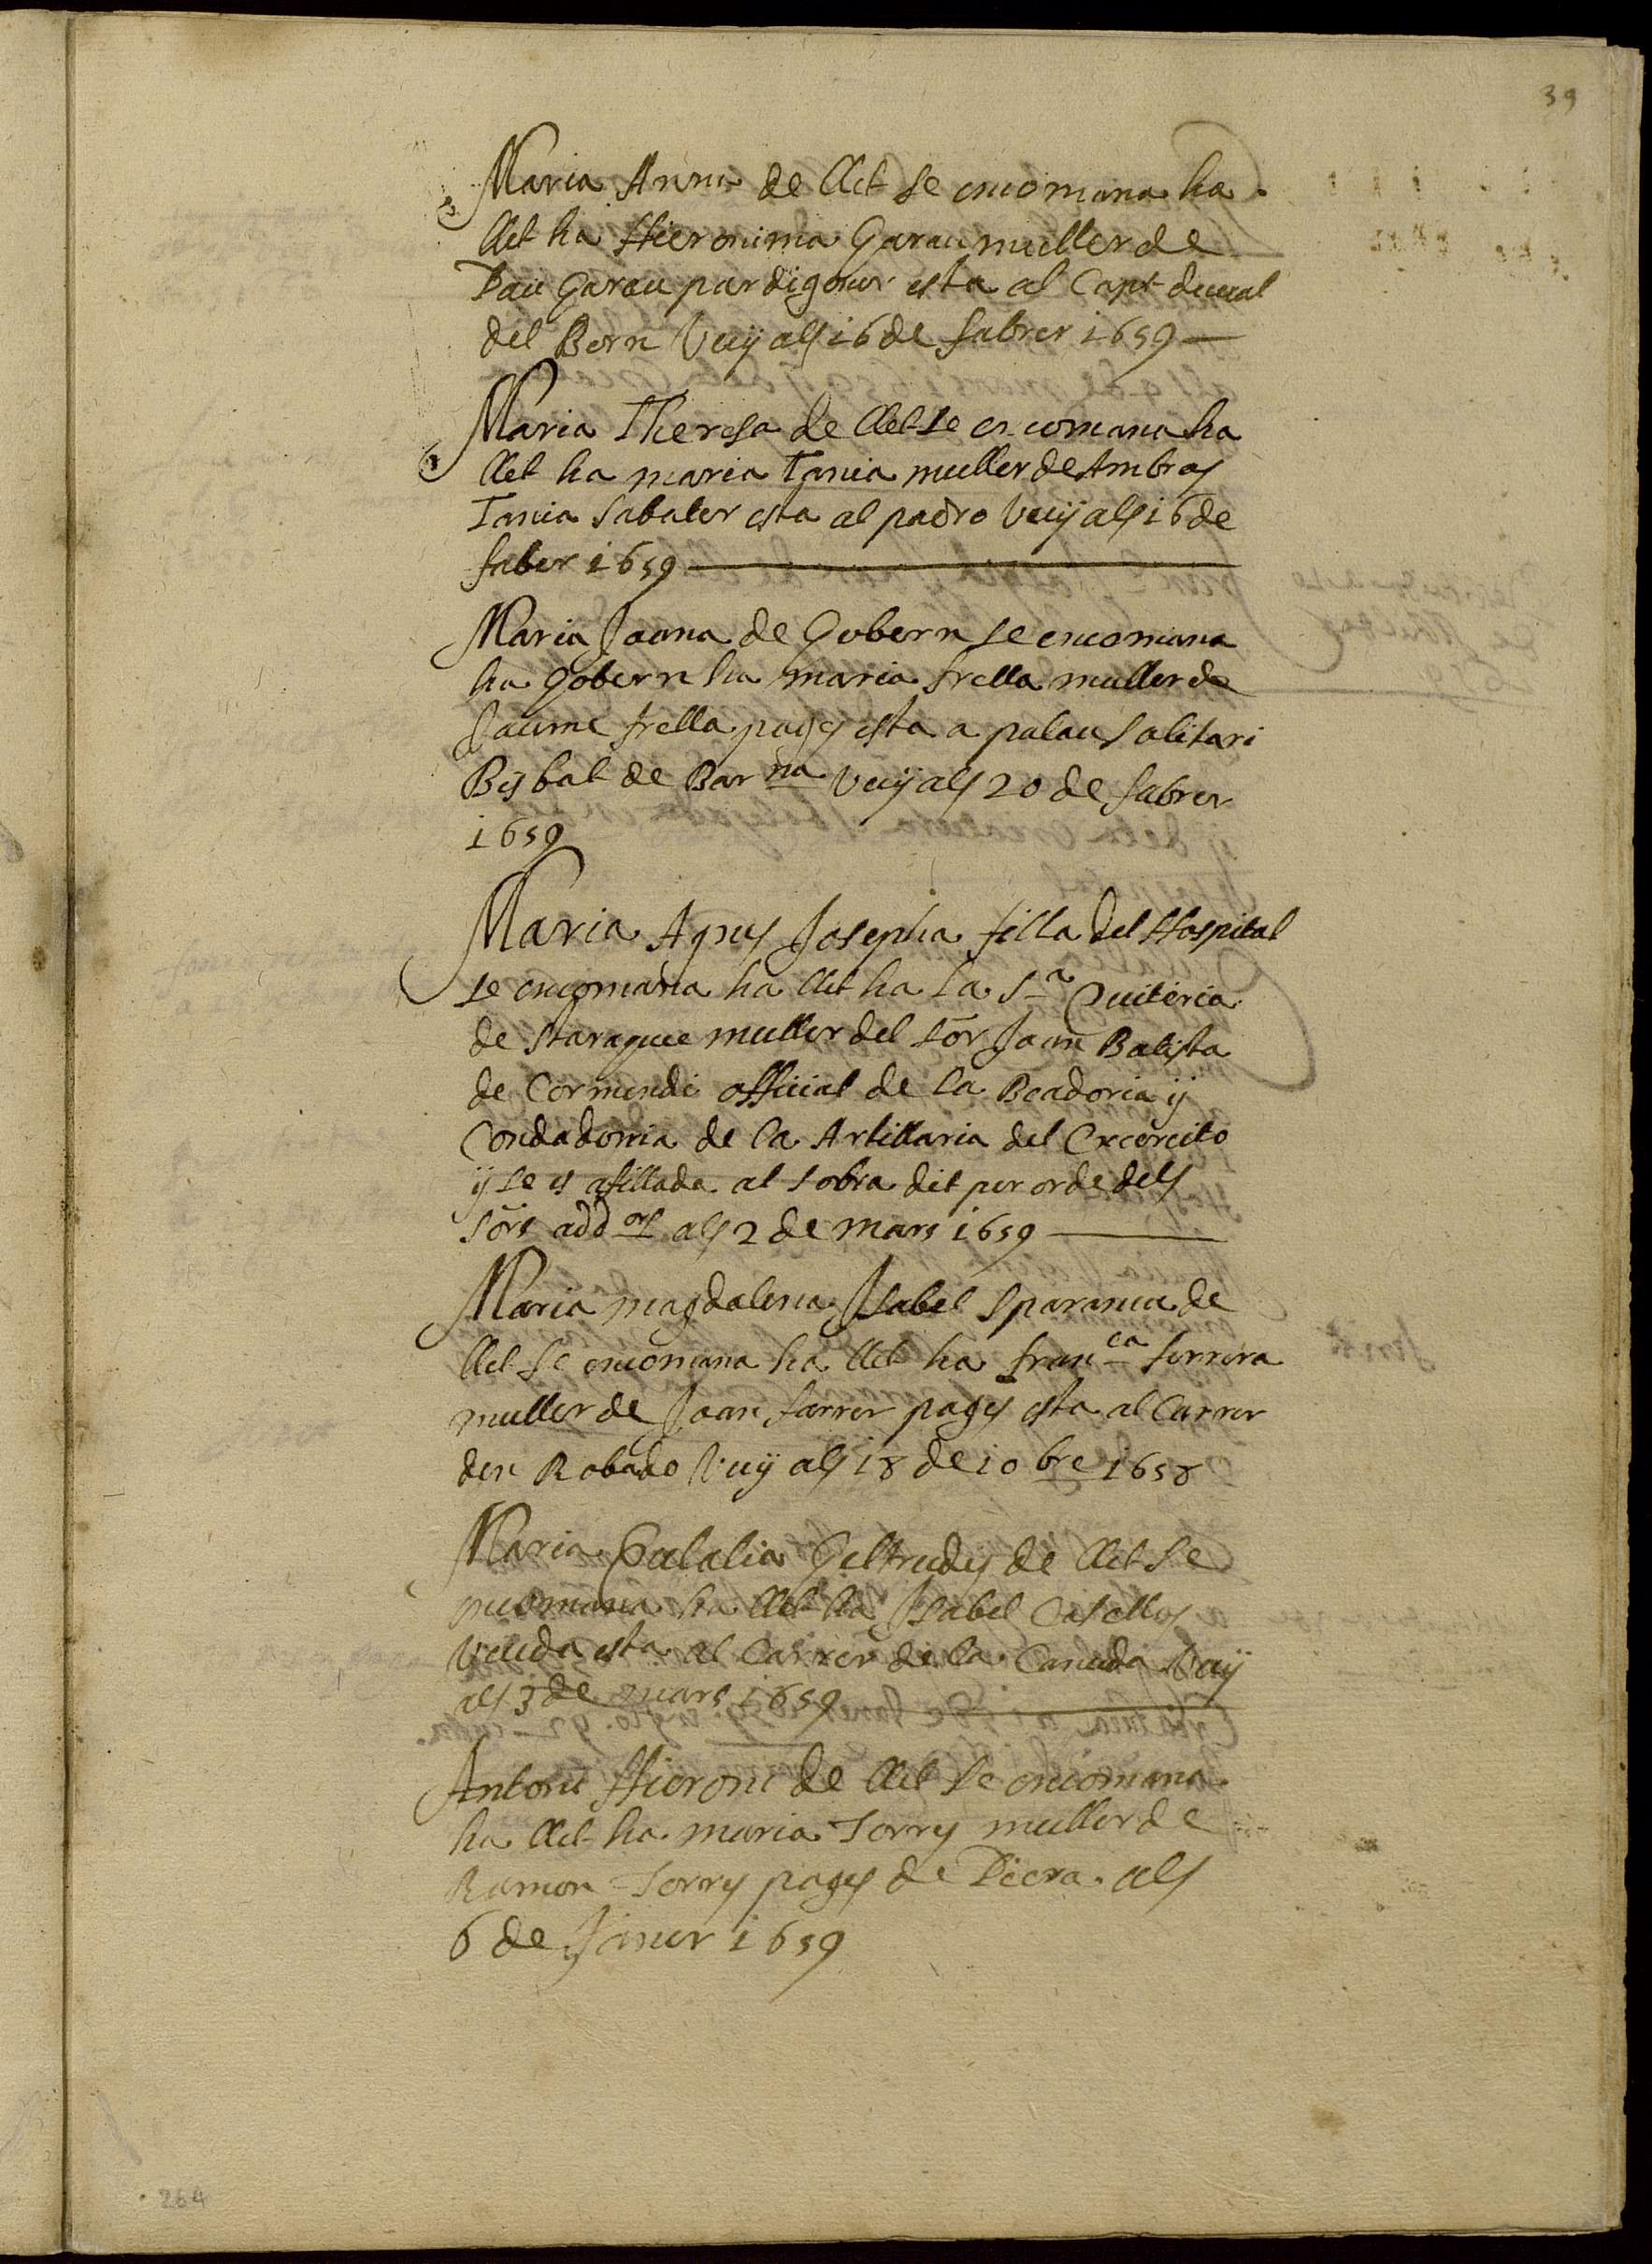 39
Maria Anna de llet se encomana ha
llet ha Hieronima Garau muller de
Pau Garau pardigoner esta al Capt de vall
del Born Vuy als 16 de fabrer 1659
Maria Theresa de llet se encomana ha
llet ha maria Tania muller de Ambros
Tania sabater esta al padro Vuy als 16 de
faber 1659
Maria Joana de Gobern se encomana
ha Gobern ha maria frella muller de
Jaume frella pages esta a palau salitari
Bisbat de Barna Vuy als 20 de fabrer
1659
Maria Agnes Josepha filla del Hospital
se encomana ha llet ha la Sra Quiteria
de muller del sor Joan Batista
de Cormendi official de la Beadoria y
Condadorria de la Artillaria del Excercito
y se es afillada al sobra dit per orde dels
sors addors als 2 de mars 1659
Maria magdalena Isabel Sparansa de
llet se encomana ha llet ha franca ferrera
muller de Joan farrer pages esta al Carrer
den Robado Vuy als 18 de 10bre 1658
Maria Eulalia Geltrudis de llet se
encomana ha llet ha Isabel Casellas
Veuda esta al Carrer de la Canuda Vuy
als 3 de mars 1659
Antoni Hieroni de llet se encomana
ha llet ha maria Torres muller de
Ramon Torres pages de Piera als
6 de Janer 1659
264